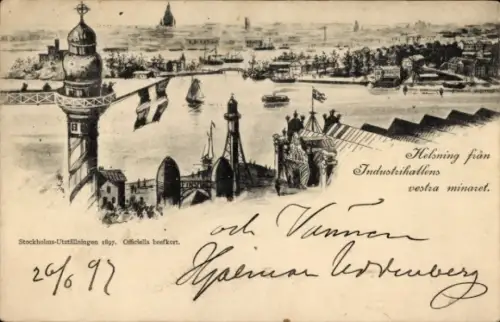 Helsning från
Industrihallens
vestra minaret.
Stockholms-Utställningen 1897. Officiella brefkort.
och Vännen
26/6 97
Hjalmar Uddenberg